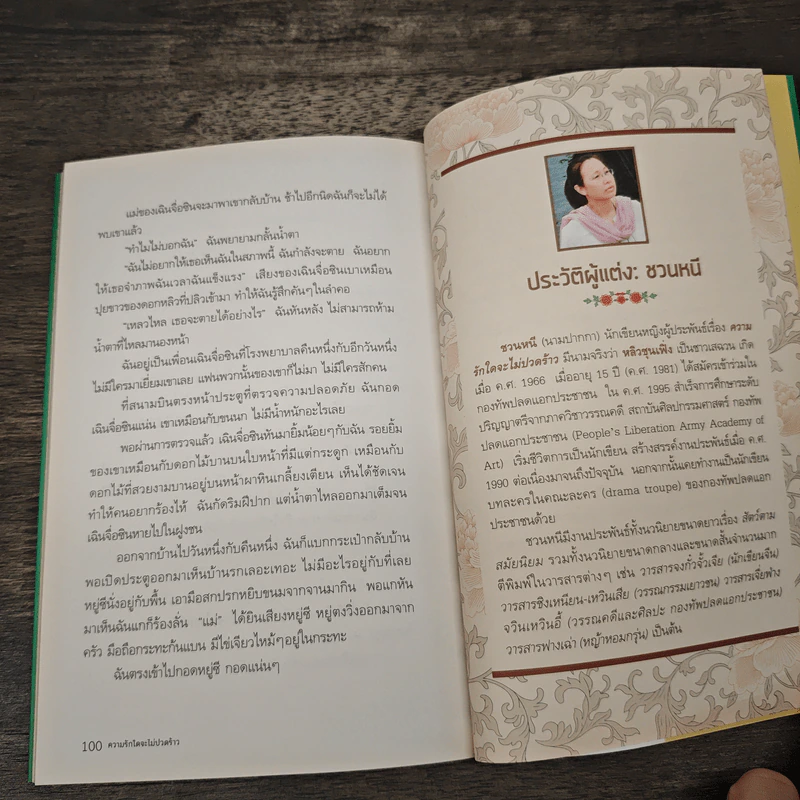 แม่ของเฉินจื่อซินจะมาพาเขากลับบ้าน ช้าไปอีกนิดฉันก็จะไม่ได้
พบเขาแล้ว
"ทำไมไม่บอกฉัน" ฉันพยายามกลั้นน้ำตา
"ฉันไม่อยากให้เธอเห็นฉันในสภาพนี้ ฉันกำลังจะตาย ฉันอยาก
ให้เธอจำภาพฉันเวลาฉันแข็งแรง" เสียงของเฉินจื่อซินเบาเหมือน
ปุยขาวของดอกหลิวที่ปลิวเข้ามา ทำให้ฉันรู้สึกคันๆในลำคอ
"เหลวไหล เธอจะตายได้อย่างไร" ฉันหันหลัง ไม่สามารถห้าม
น้ำตาที่ไหลมานองหน้า
ฉันอยู่เป็นเพื่อนเฉินจื่อซินที่โรงพยาบาลคืนหนึ่งกับอีกวันหนึ่ง
ไม่มีใครมาเยี่ยมเขาเลย แฟนพวกนั้นของเขาก็ไม่มา ไม่มีใครสักคน
ที่สนามบินตรงหน้าประตูที่ตรวจความปลอดภัย ฉันกอด
เฉินจื่อซินแน่น เขาเหมือนกับขนนก ไม่มีน้ำหนักอะไรเลย
พอผ่านการตรวจแล้ว เฉินจื่อซินหันมายิ้มน้อยๆกับฉัน รอยยิ้ม
ของเขาเหมือนกับดอกไม้บานบนใบหน้าที่มีแต่กระดูก เหมือนกับ
ดอกไม้ที่สวยงามบานอยู่บนหน้าผาหินเกลี้ยงเตียน เห็นได้ชัดเจน
ทำให้คนอยากร้องไห้ ฉันกัดริมฝีปาก แต่น้ำตาไหลออกมาเต็มจน
เฉินจื่อซินหายไปในฝูงชน
ออกจากบ้านไปวันหนึ่งกับคืนหนึ่ง ฉันก็แบกกระเป๋ากลับบ้าน
พอเปิดประตูออกมาเห็นบ้านรกเลอะเทอะ ไม่มีอะไรอยู่กับที่เลย
หยู่ซีนั่งอยู่กับพื้น เอามือสกปรกหยิบขนมจากจานมากิน พอแกหัน
มาเห็นฉันแกก็ร้องลั่น "แม่" ได้ยินเสียงหยู่ซี หยู่ตงวิ่งออกมาจาก
ครัว มือถือกระทะก้นแบน มีไข่เจียวไหม้ๆอยู่ในกระทะ
ฉันตรงเข้าไปกอดหยู่ซี กอดแน่นๆ
100 ความรักใดจะไม่ปวดร้าว
ประวัติผู้แต่ง: ชวนหนี
ชวนหนี (นามปากกา) นักเขียนหญิงผู้ประพันธ์เรื่อง ความ
รักใดจะไม่ปวดร้าว มีนามจริงว่า หลิวชุนเฟิง เป็นชาวเสฉวน เกิด
เมื่อ ค.ศ. 1966 เมื่ออายุ 15 ปี (ค.ศ. 1981) ได้สมัครเข้าร่วมใน
กองทัพปลดแอกประชาชน ใน ค.ศ. 1995 สำเร็จการศึกษาระดับ
ปริญญาตรีจากภาควิชาวรรณคดี สถาบันศิลปกรรมศาสตร์ กองทัพ
ปลดแอกประชาชน (People's Liberation Army Academy of
Art) เริ่มชีวิตการเป็นนักเขียน สร้างสรรค์งานประพันธ์เมื่อ ค.ศ.
1990 ต่อเนื่องมาจนถึงปัจจุบัน นอกจากนั้นเคยทำงานเป็นนักเขียน
บทละครในคณะละคร (drama troupe) ของกองทัพปลดแอก
ประชาชนด้วย
ชวนหนีมีงานประพันธ์ทั้งนวนิยายขนาดยาวเรื่อง สัตว์ตาม
สมัยนิยม รวมทั้งนวนิยายขนาดกลางและขนาดสั้นจำนวนมาก
ตีพิมพ์ในวารสารต่างๆ เช่น วารสารจงกั๋วจั้วเจีย (นักเขียนจีน)
วารสารชิงเหนียน-เหวินเสีย (วรรณกรรมเยาวชน) วารสารเจี่ยฟ่าง
จวินเหวินอี้ (วรรณคดีและศิลปะ กองทัพปลดแอกประชาชน)
วารสารฟางเฉ่า (หญ้าหอมกรุ่น) เป็นต้น